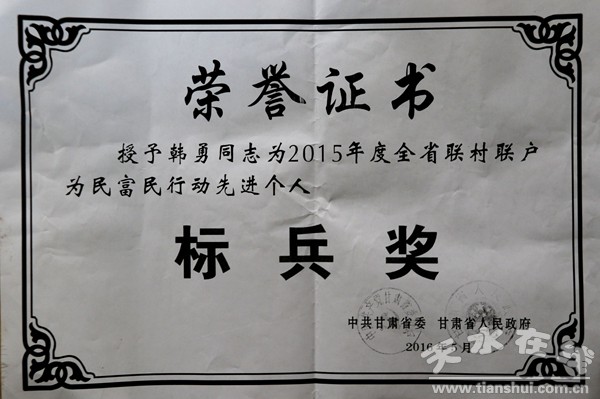 荣誉证书
授予韩勇同志为2015年度全省联村联户
为民富民行动先进个人
标兵奖
中共甘肃省委 甘肃省人民政府
2016年5月
天水在线
www.tianshui.com.cn